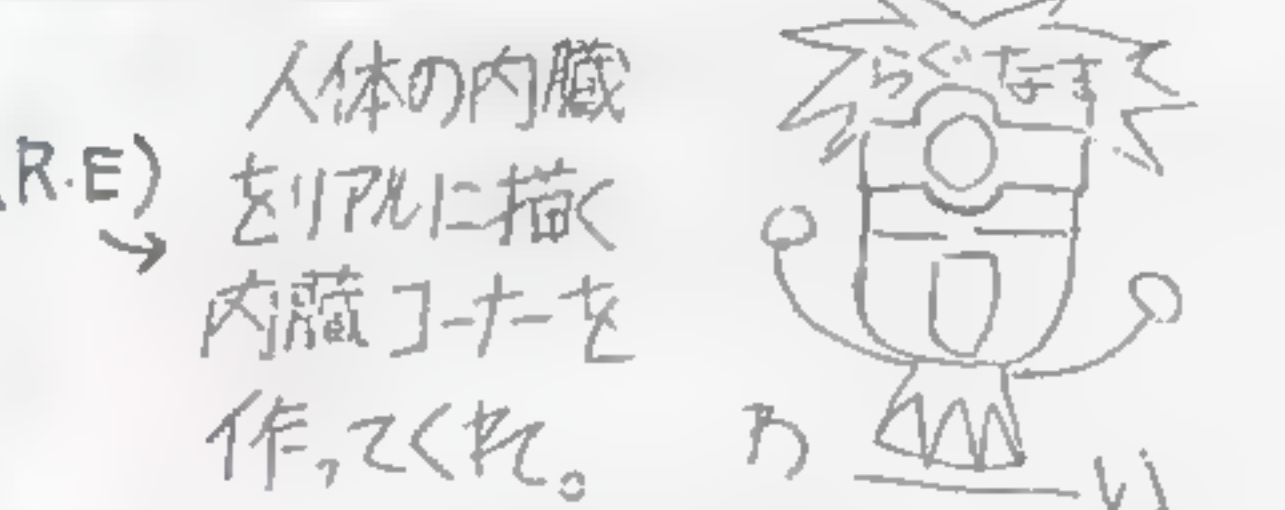 R.E)
人体の内臓
をリアルに描く
内臓コーナーを
作ってくれ。
らぐなま
わーい